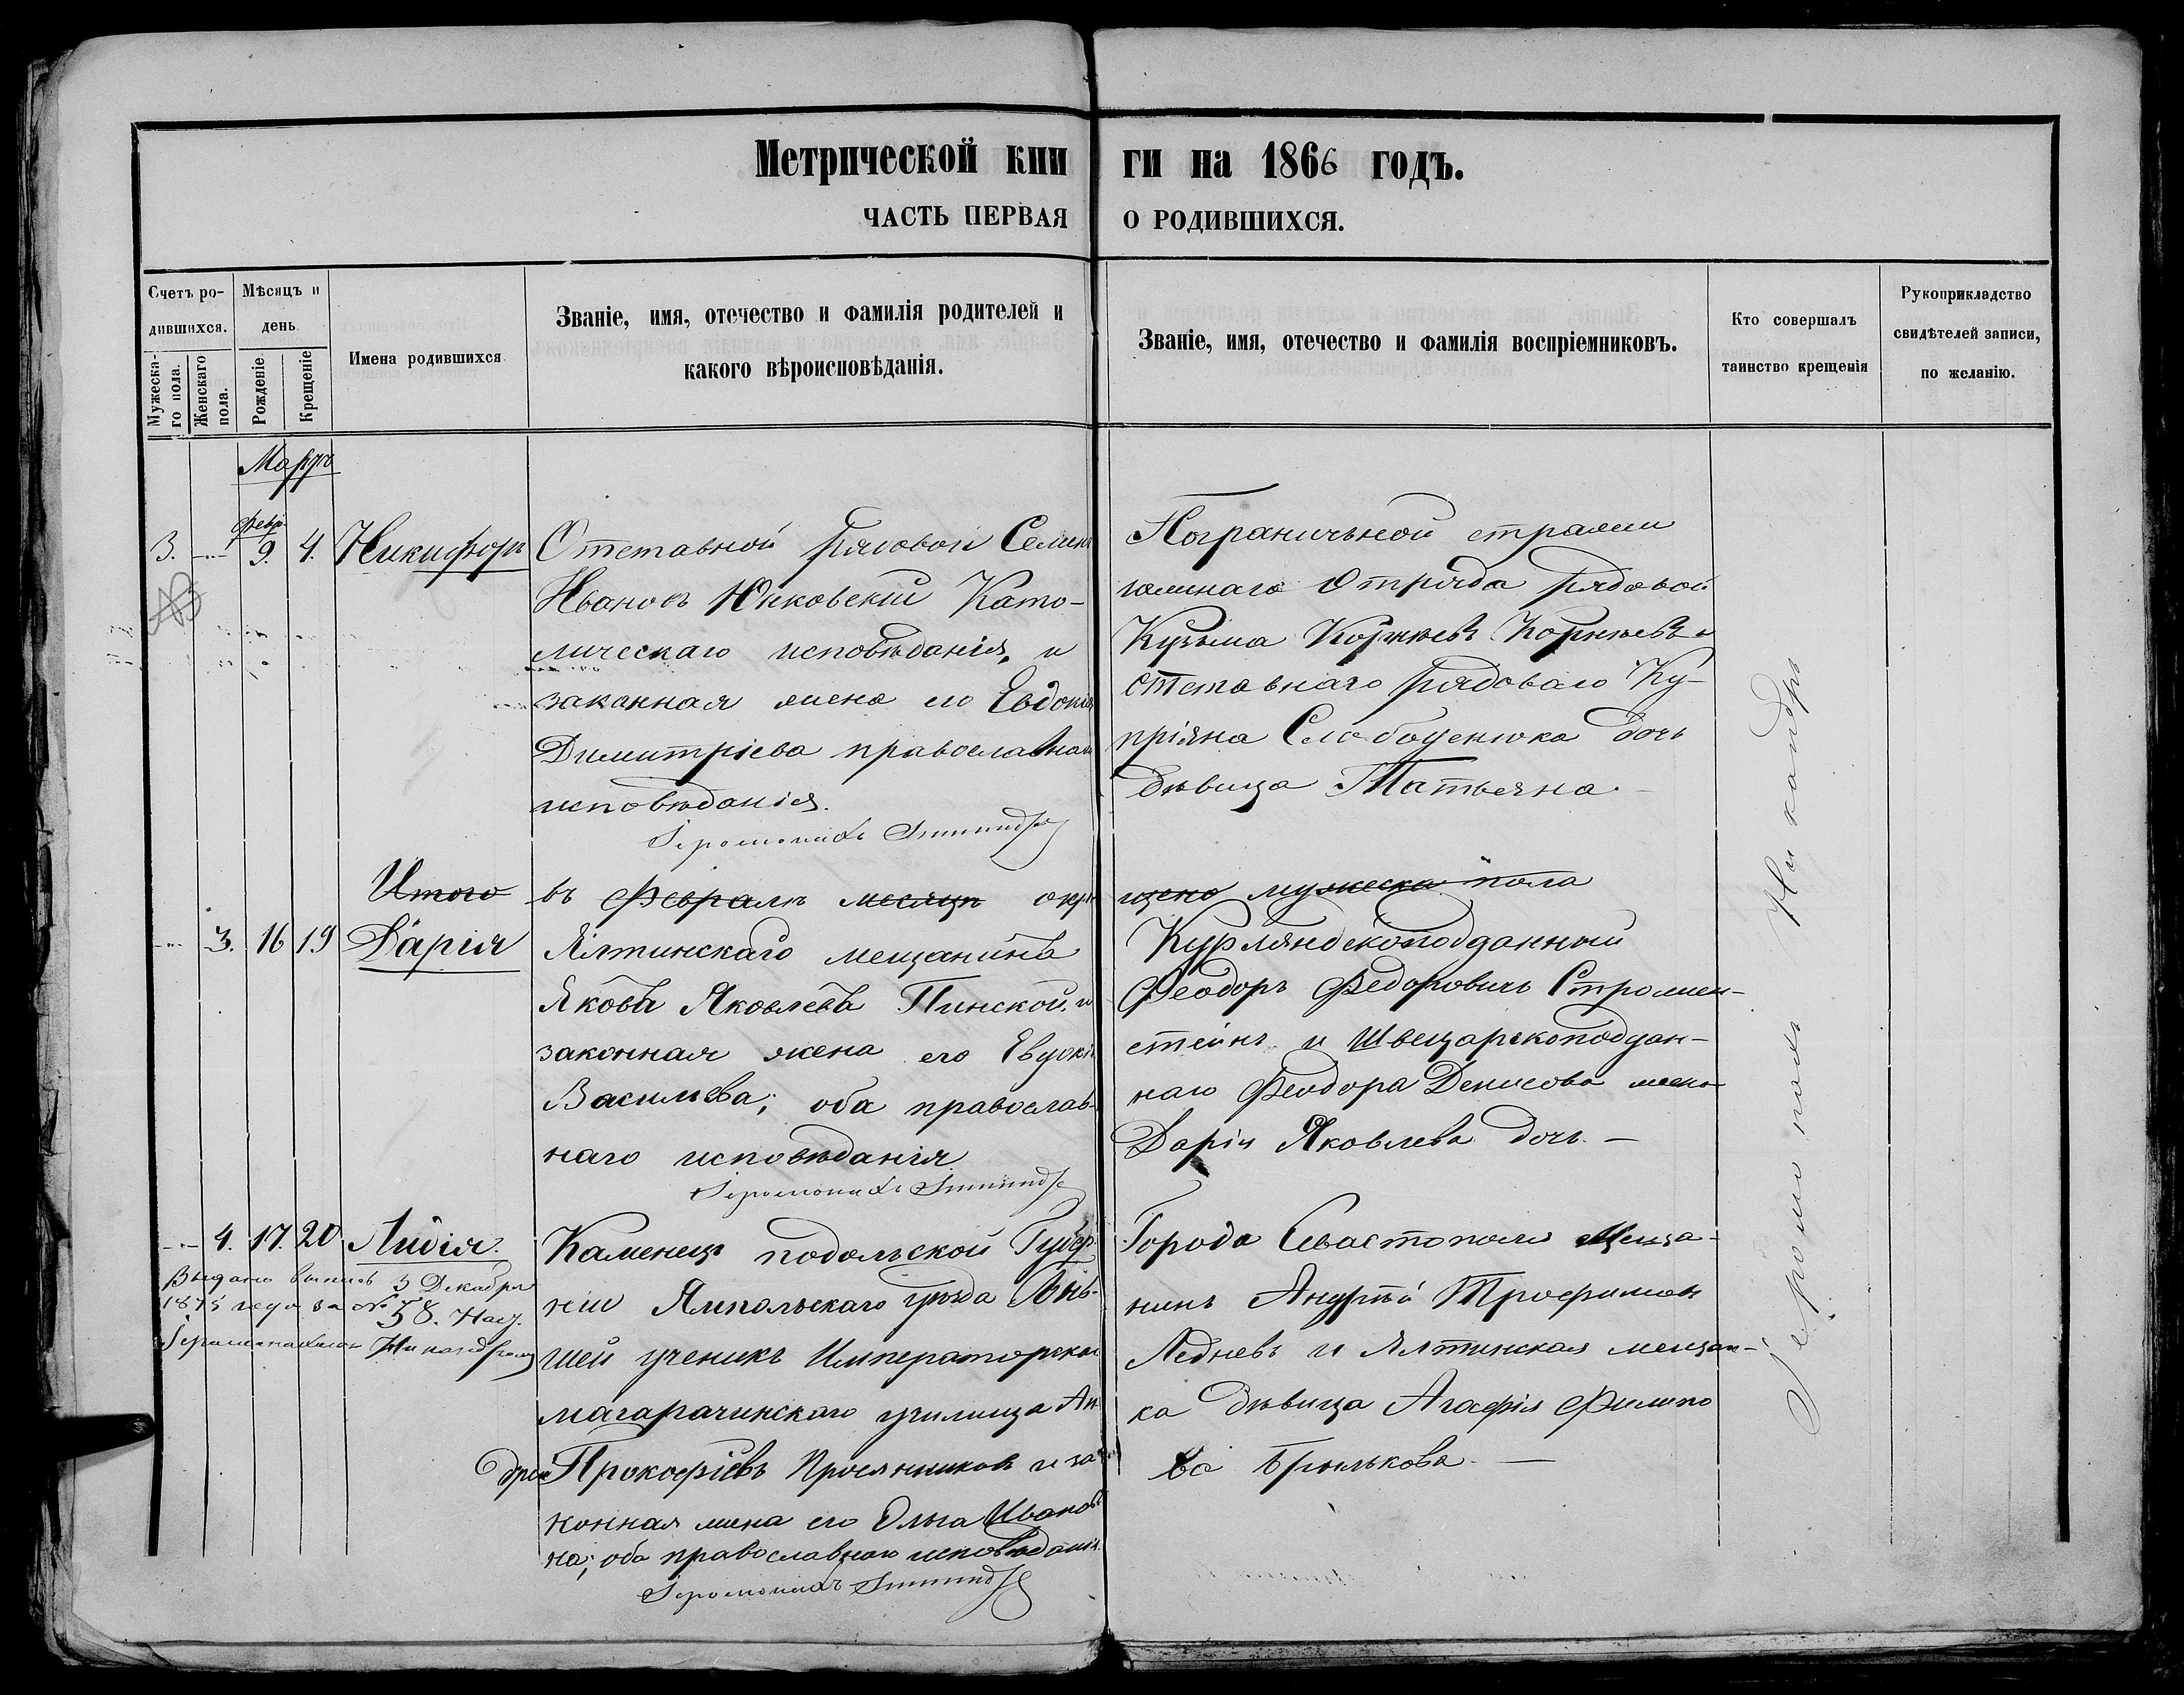 Метрической кни ги на 1866 годъ.
ЧАСТЬ ПЕРВАЯ О РОДИВШИХСЯ.
Счетъ ро-
дившихся.
Мужеска-
го пола.
Женскаго
пола.
Мѣсяцъ и
день
Рожденіе
Крещеніе
Имена родившихся
Званіе, имя, отечество и фамилія родителей и
какого вѣроисповѣданія.
Званіе, имя, отечество и фамилія воспріемниковъ.
Кто совершалъ
таинство крещенія
Рукоприкладство
свидѣтелей записи,
по желанію.
Мартъ
Февр.
3. 9. 4. Никифоръ
Отставной рядовой Семенъ
Ивановъ Юнковскій Като-
лическаго исповѣданія, и
законная жена его Евдокія
Димитріева православнаго
исповѣданія.
Іеромонахъ
Пограничьной стражи
Отряда рядовой
Кузьма Корнѣевъ Корнѣевъ и
отставнаго рядоваго Ку-
пріяна Слободенюка дочь
дѣвица Татьяна
Итого въ Февралѣ месяцѣ окре щено мужеска пола
3. 16 19 Дарія
Ялтинскаго мещанина
Якова Яковлева Пинской, и
законная жена его Евдокія
Васильева; оба православ-
наго исповѣданія
Іеромонахъ
Курляндскоподданный
Феодоръ Федоровичь Стромен-
стейнъ и Швецарскоподдан-
наго Феодора Денисова жена
Дарія Яковлева дочь. —
4. 17. 20 Лидія.
Выдано выпись 3 Декабря
1875 года за № 58. Наст.
Іеромонахомъ Никандромъ
Каменецъ подольской Губер-
ніи Ямпольскаго уѣзда быв-
шей ученикъ Императорскаго
магарачинскаго училища Ан-
дрей Прокофіевъ Просянников и за-
конная жена его Ольга Иванов-
на; оба православнаго исповѣданія.
Іеромонахъ
Города Севастополя Меща-
нинъ Ануфрій Трофимовъ
Ледневъ и Ялтинская мещан-
ка дѣвица Агафія Филипо
ва Брылькова. —
Іеромонахъ Никандръ